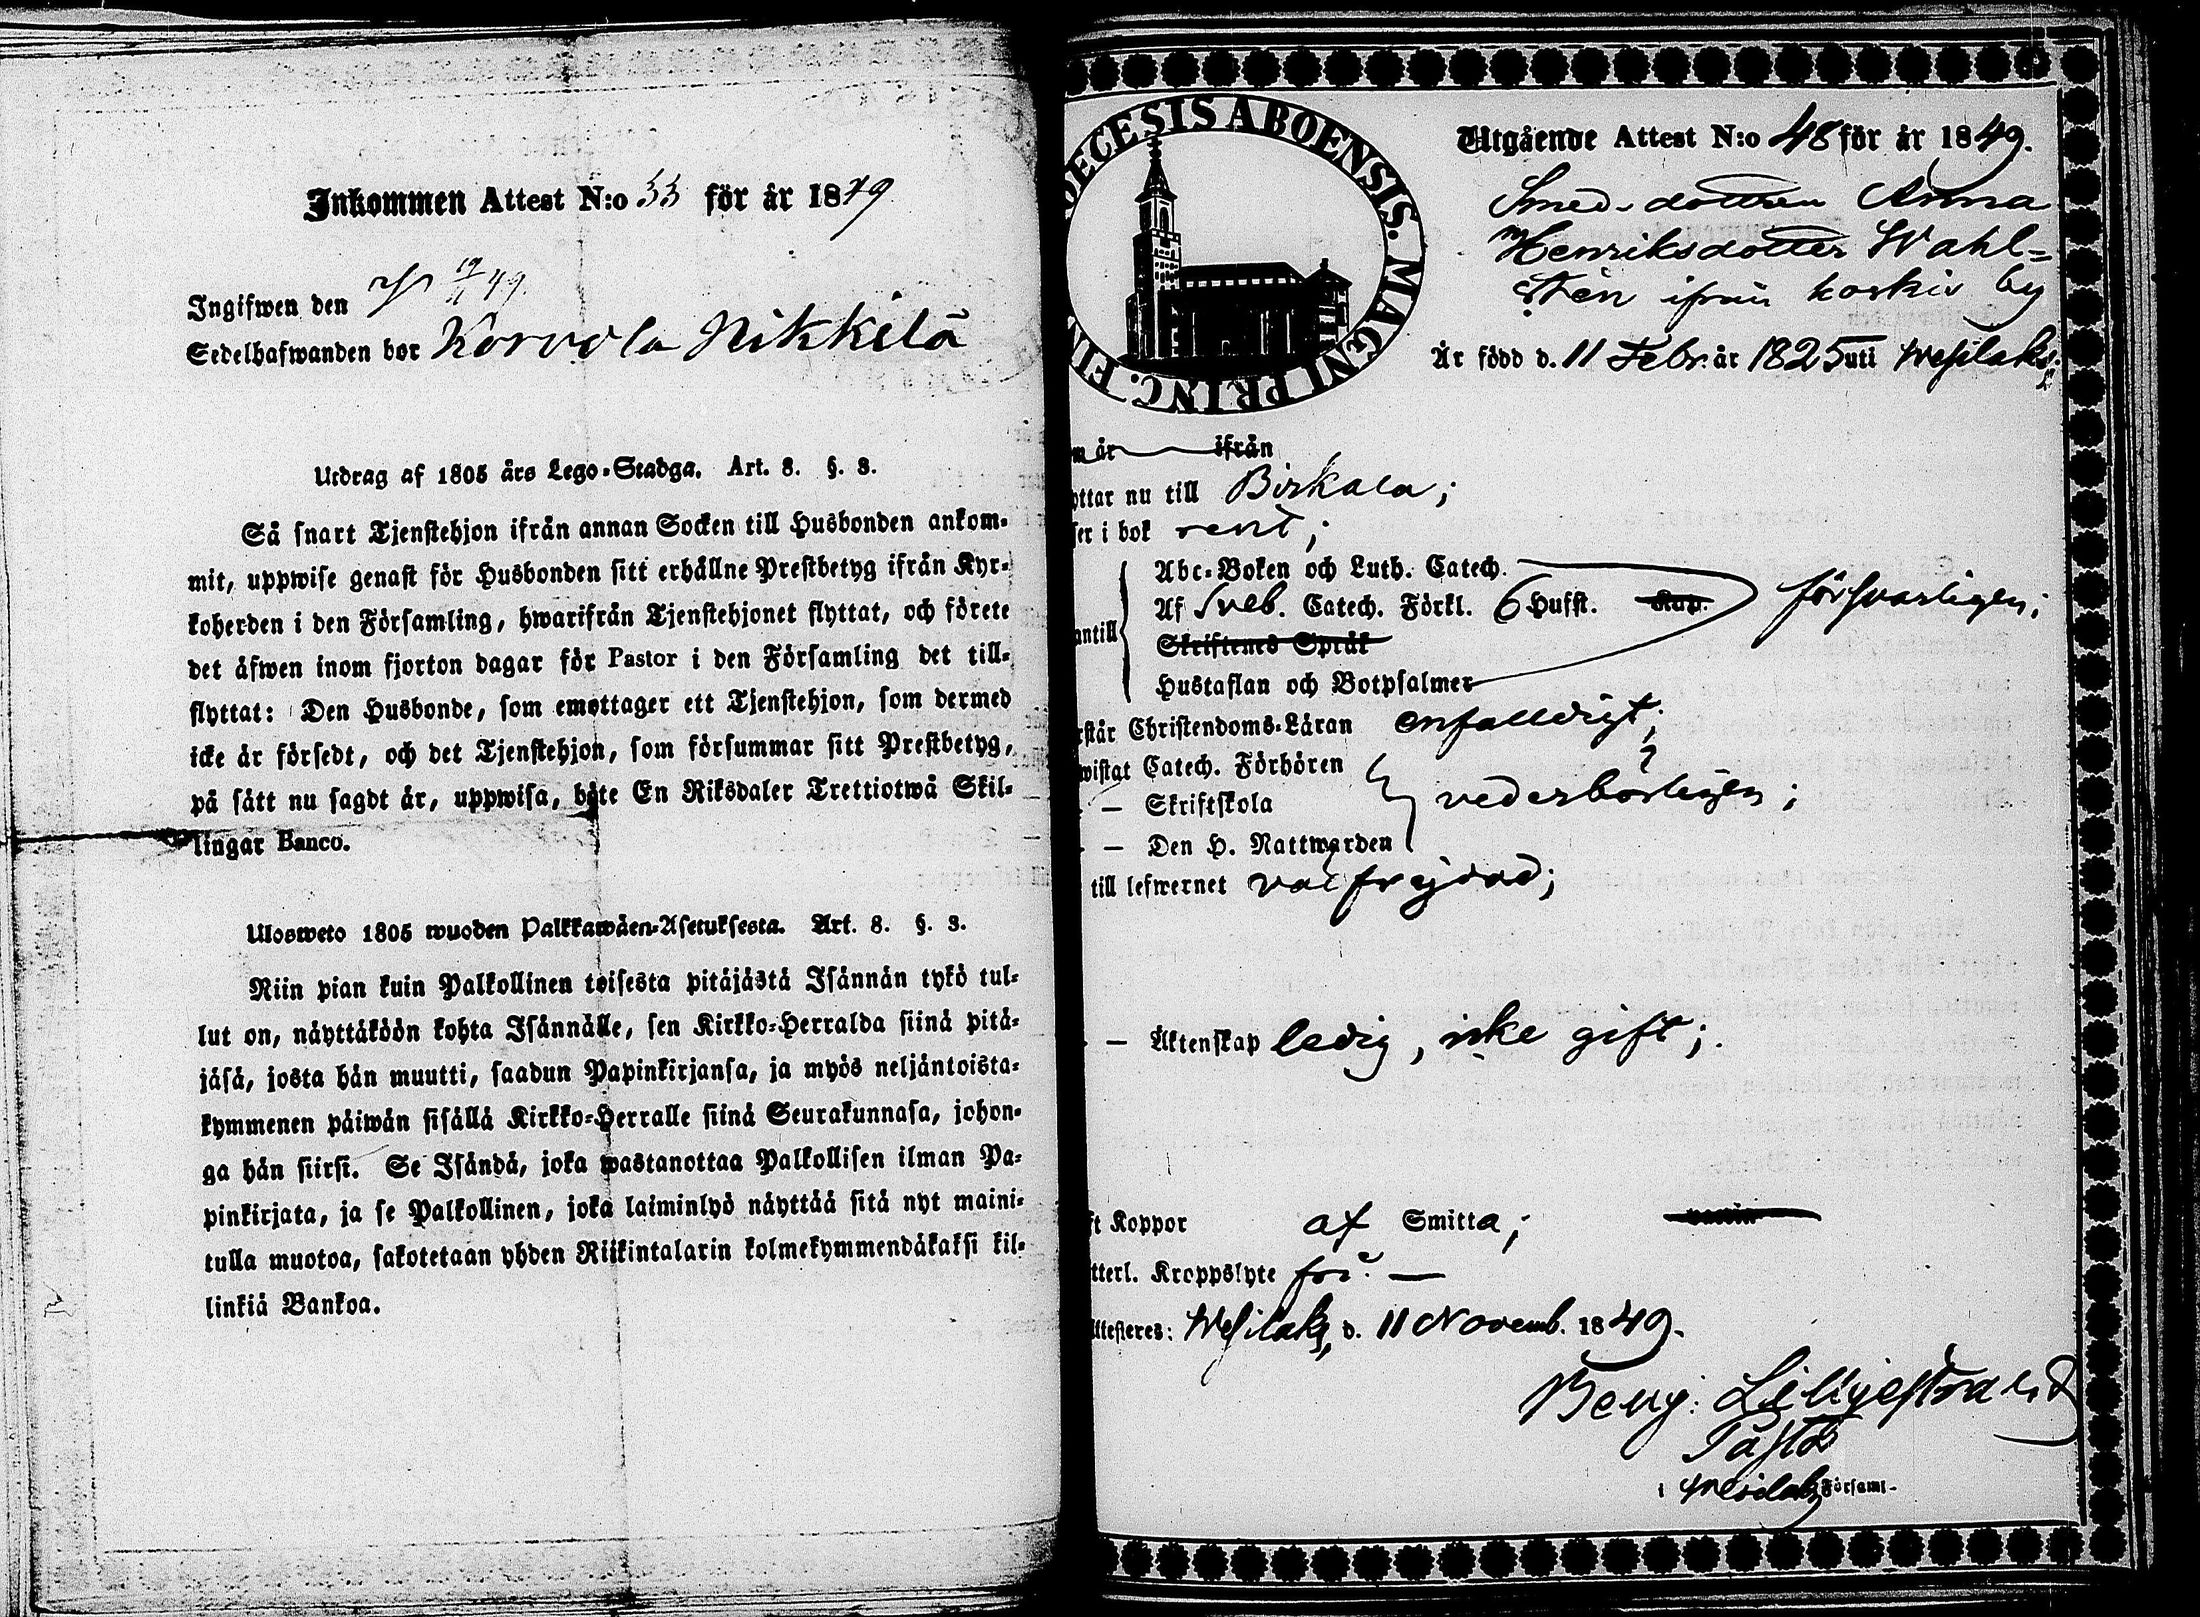 Inkommen Attest N:o 33 för år 1849
Ingifwen den 19/11 49.
Sedelhafwanden bor Korvola Nikkilä
Utdrag af 1805 års Lego-Stadga. Art. 8. §. 3.
Så snart Tjenstehjon ifrån annan Socken till Husbonden ankom-
mit, uppwise genast för Husbonden sitt erhållne Prestbetyg ifrån Kyr-
koherden i den Församling, hwarifrån Tjenstehjonet flyttat, och förete
det äfwen inom fjorton dagar för Pastor i den Församling det till-
flyttat: Den Husbonde, som emottager ett Tjenstehjon, som dermed
icke är försedt, och det Tjenstehjon, som försummar sitt Prestbetyg,
på sätt nu sagdt är, uppwisa, böte En Riksdaler Trettiotwå Skil-
lingar Banco.
Ulosweto 1805 wuoden Palkkawäen-Asetuksesta. Art. 8. §. 3.
Niin pian kuin Palkollinen toisesta pitäjästä Isännän tykö tul-
lut on, näyttäköön kohta Isännälle, sen Kirkko-Herralda siinä pitä-
jäsä, josta hän muutti, saadun Papinkirjansa, ja myös neljäntoista-
kymmenen päiwän sisällä Kirkko-Herralle siinä Seurakunnasa, johon-
ga hän siirsi. Se Isändä, joka wastanottaa Palkollisen ilman Pa-
pinkirjata, ja se Palkollinen, joka laiminlyö näyttää sitä nyt maini-
tulla muotoa, sakotetaan yhden Riikintalarin kolmekymmendäkaksi kil-
linkiä Bankoa.
DECESIS ABOENSIS. MAGNI PRINC. FIN
Utgående Attest N:o 48 för år 1849.
Smed-dottren Anna
Henriksdotter Wahl=
stén ifrån koskis by
Är född d. 11 Febr. år 1825 uti Wesilaks;
m år ifrån
ottar nu till Birkala;
ser i bok rent;
antill
Abc-Boken och Luth. Catech.
Af Sveb. Catech. Förkl. 6 Hufst. Kap. försvarligen;
Skriftenes Språk
Hustaflan och Botpsalmer
rstår Christendoms-Läran enfalldigt;
wistat Catech. Förhören
— Skriftskola vederbörligen;
— Den H. Nattwarden
till lefwernet välfrejdad;
— Äktenskap ledig, icke gift;
ft Koppor af Smitta;
tterl. Kroppslyte fri. —
Attesteres: Wesilaks, d. 11 Novemb. 1849.
Benj: Lilljestrand
Pastor
i Wesilaks Församl-